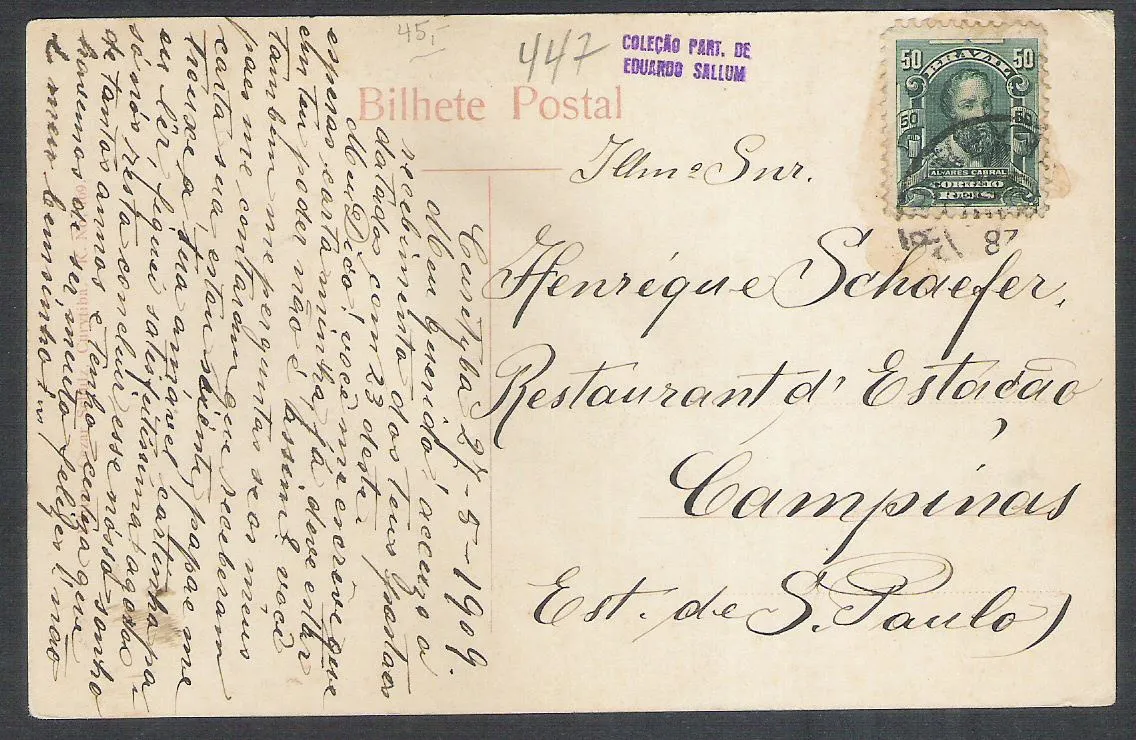 45,-
447
COLEÇÃO PART. DE
EDUARDO SALLUM
Bilhete Postal
50 BRAZIL 50
50 50
ALVARES CABRAL
CORREIO
REIS
Illmo Snr.
Henrique Schaefer,
Restaurant d' Estação
Campinas
Est. de S. Paulo
Curityba 27-5-1909.
Meu querido! accuzo o
recebimento dos teus postaes
datados com 23 deste.
Meu Dódó! você me escreve que
esperas carta minha, já deve estar
em teu poder não é assim? você
tambem me perguntas se os meus
paes me contaram que receberam
carta sua, estou sciente, papae me
trouxe a tua amavel cartinha pa-
ra lêr, fiquei satisfeitissima! agora
só nós resta concluir esse nósso sonho
de tantos annos e tenho certeza que
havemos de ser muito felizes! não
é meu bemsinho?